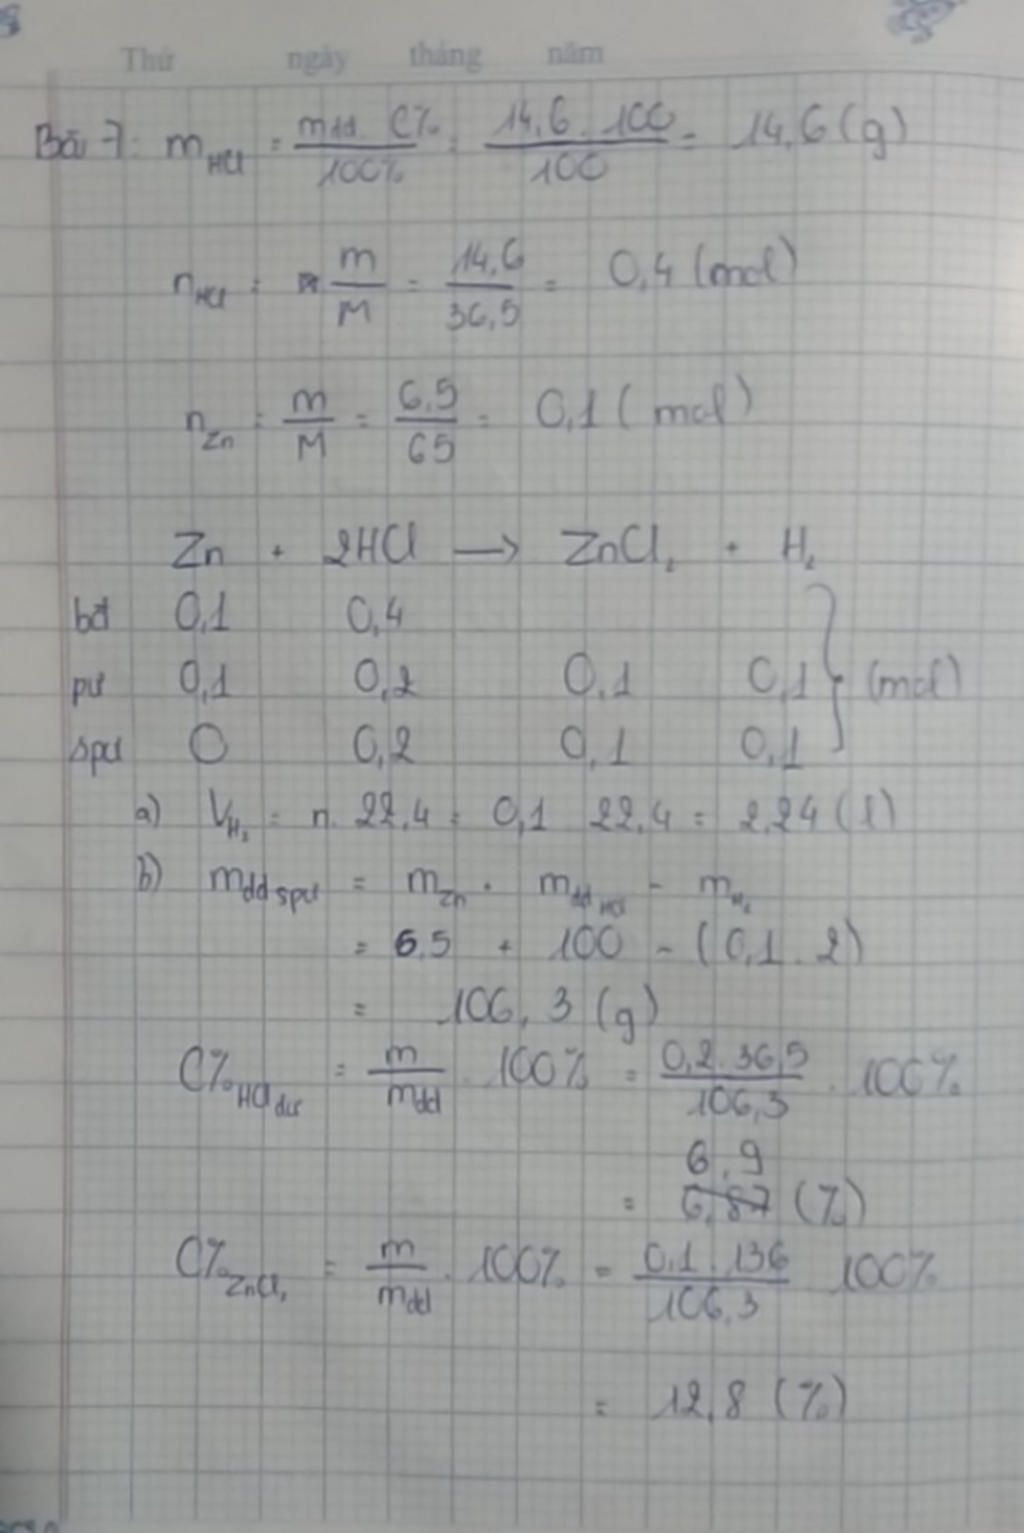 Thứ ngày tháng năm
Bài 7: mHCl = mdd. C% / 100% = 14,6 . 100 / 100 = 14,6 (g)
nHCl = m / M = 14,6 / 36,5 = 0,4 (mol)
nZn = m / M = 6,5 / 65 = 0,1 (mol)
Zn + 2HCl → ZnCl₂ + H₂
bđ 0,1 0,4
pư 0,1 0,2 0,1 0,1 } (mol)
spư 0 0,2 0,1 0,1
a) VH₂ = n. 22,4 = 0,1 22,4 = 2,24 (l)
b) mdd spư = mZn + mdd HCl - mH₂
= 6,5 + 100 - (0,1 . 2)
= 106,3 (g)
C% HCl dư = m / mdd . 100% = 0,2 . 36,5 / 106,3 . 100%
6,9
= 6,87 (%)
C% ZnCl₂ = m / mdd . 100% = 0,1 . 136 / 106,3 100%
= 12,8 (%)